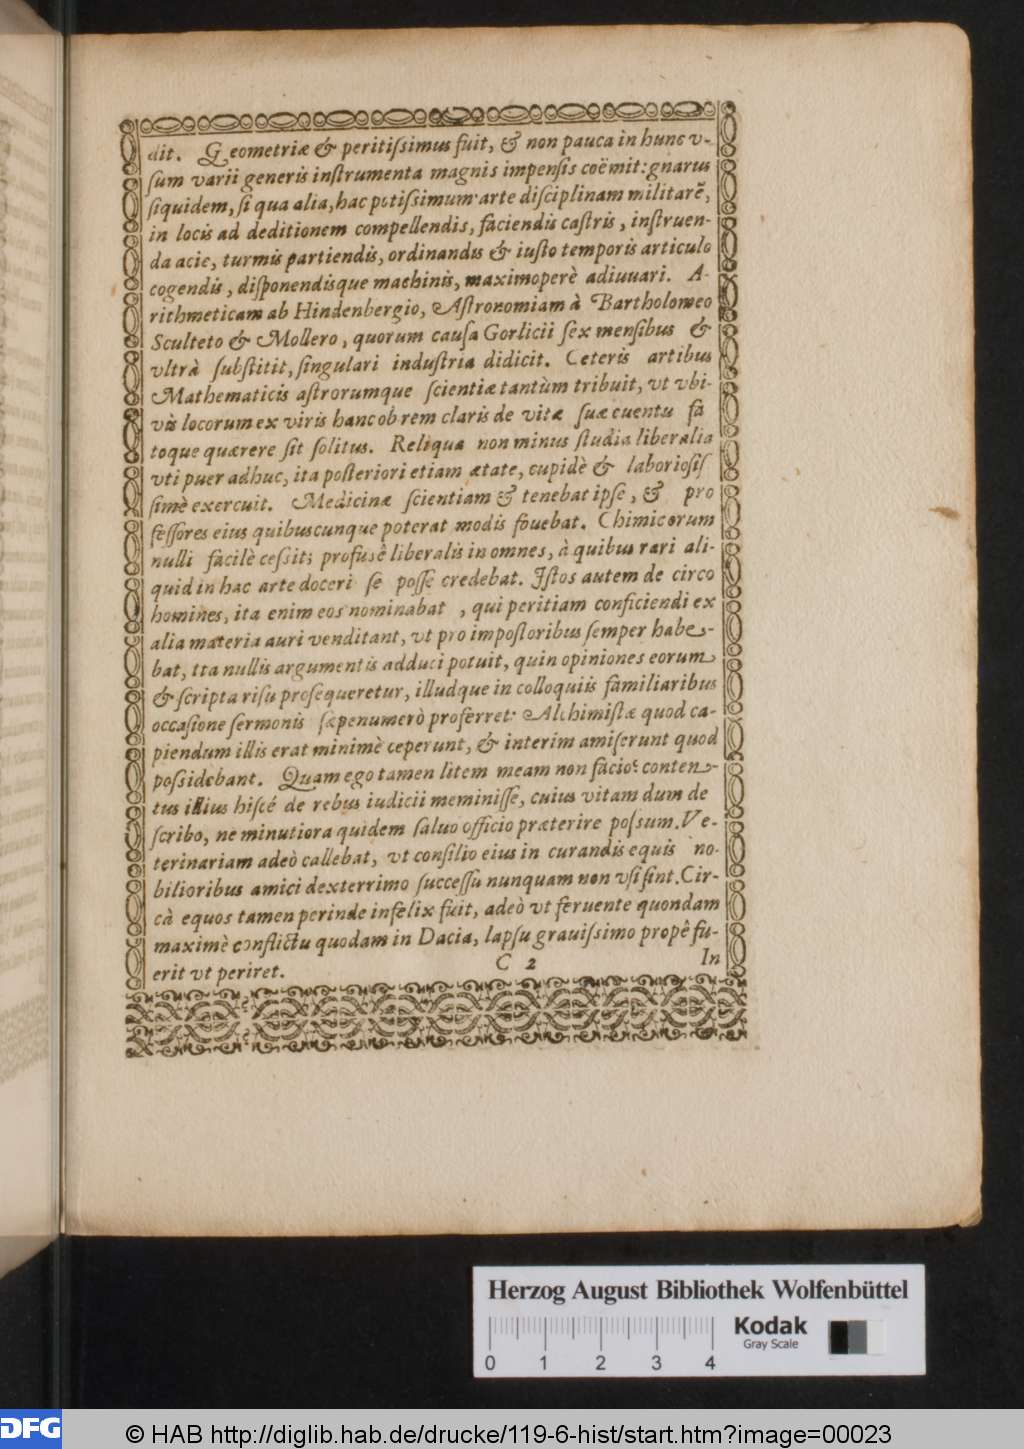 dit. Geometriæ & peritiſsimus fuit, & non pauca in hunc v-
ſum varii generis inſtrumenta magnis impenſis coëmit: gnarus
ſiquidem, ſi qua alia, hac potiſsimum arte diſciplinam militarẽ,
in locis ad deditionem compellendis, faciendis caſtris, inſtruen-
da acie, turmis partiendis, ordinandis & iuſto temporis articulo
cogendis, diſponendisque machinis, maximoperè adiuuari. A-
rithmeticam ab Hindenbergio, Aſtronomiam à Bartholomeo
Sculteto & Mollero, quorum cauſa Gorlicii ſex menſibus &
vltrà ſubſtitit, ſingulari induſtria didicit. Ceteris artibus
Mathematicis aſtrorumque ſcientiæ tantùm tribuit, vt vbi-
vis locorum ex viris hanc ob rem claris de vitæ ſuæ euentu fa
toque quærere ſit ſolitus. Reliqua non minus ſtudia liberalia
vti puer adhuc, ita poſteriori etiam ætate, cupidè & laborioſiſ
ſimè exercuit. Medicinæ ſcientiam & tenebat ipſe, & pro
feſſores eius quibuscunque poterat modis fouebat. Chimicorum
nulli facilè ceſsit; profuſê liberalis in omnes, à quibus rari ali-
quid in hac arte doceri ſe poſſe credebat. Iſtos autem de circo
homines, ita enim eos nominabat, qui peritiam conficiendi ex
alia materia auri venditant, vt pro impoſtoribus ſemper habe-
bat, ita nullis argumentis adduci potuit, quin opiniones eorum
& ſcripta riſu proſequeretur, illudque in colloquiis familiaribus
occaſione ſermonis ſæpenumerò proferret: Alchimiſtæ quod ca-
piendum illis erat minimè ceperunt, & interim amiſerunt quod
poſsidebant. Quam ego tamen litem meam non facio: conten-
tus illius hiſcé de rebus iudicii meminiſſe, cuius vitam dum de
ſcribo, ne minutiora quidem ſaluo officio præterire poſsum. Ve-
terinariam adeò callebat, vt conſilio eius in curandis equis no-
bilioribus amici dexterrimo ſucceſſu nunquam non vſi ſint. Cir-
cà equos tamen perinde infelix fuit, adeò vt feruente quondam
maximè conflictu quodam in Dacia, lapſu grauiſsimo propê fu-
erit vt periret.
C 2 In
Herzog August Bibliothek Wolfenbüttel
Kodak
Gray Scale
0 1 2 3 4
DFG
© HAB http://diglib.hab.de/drucke/119-6-hist/start.htm?image=00023